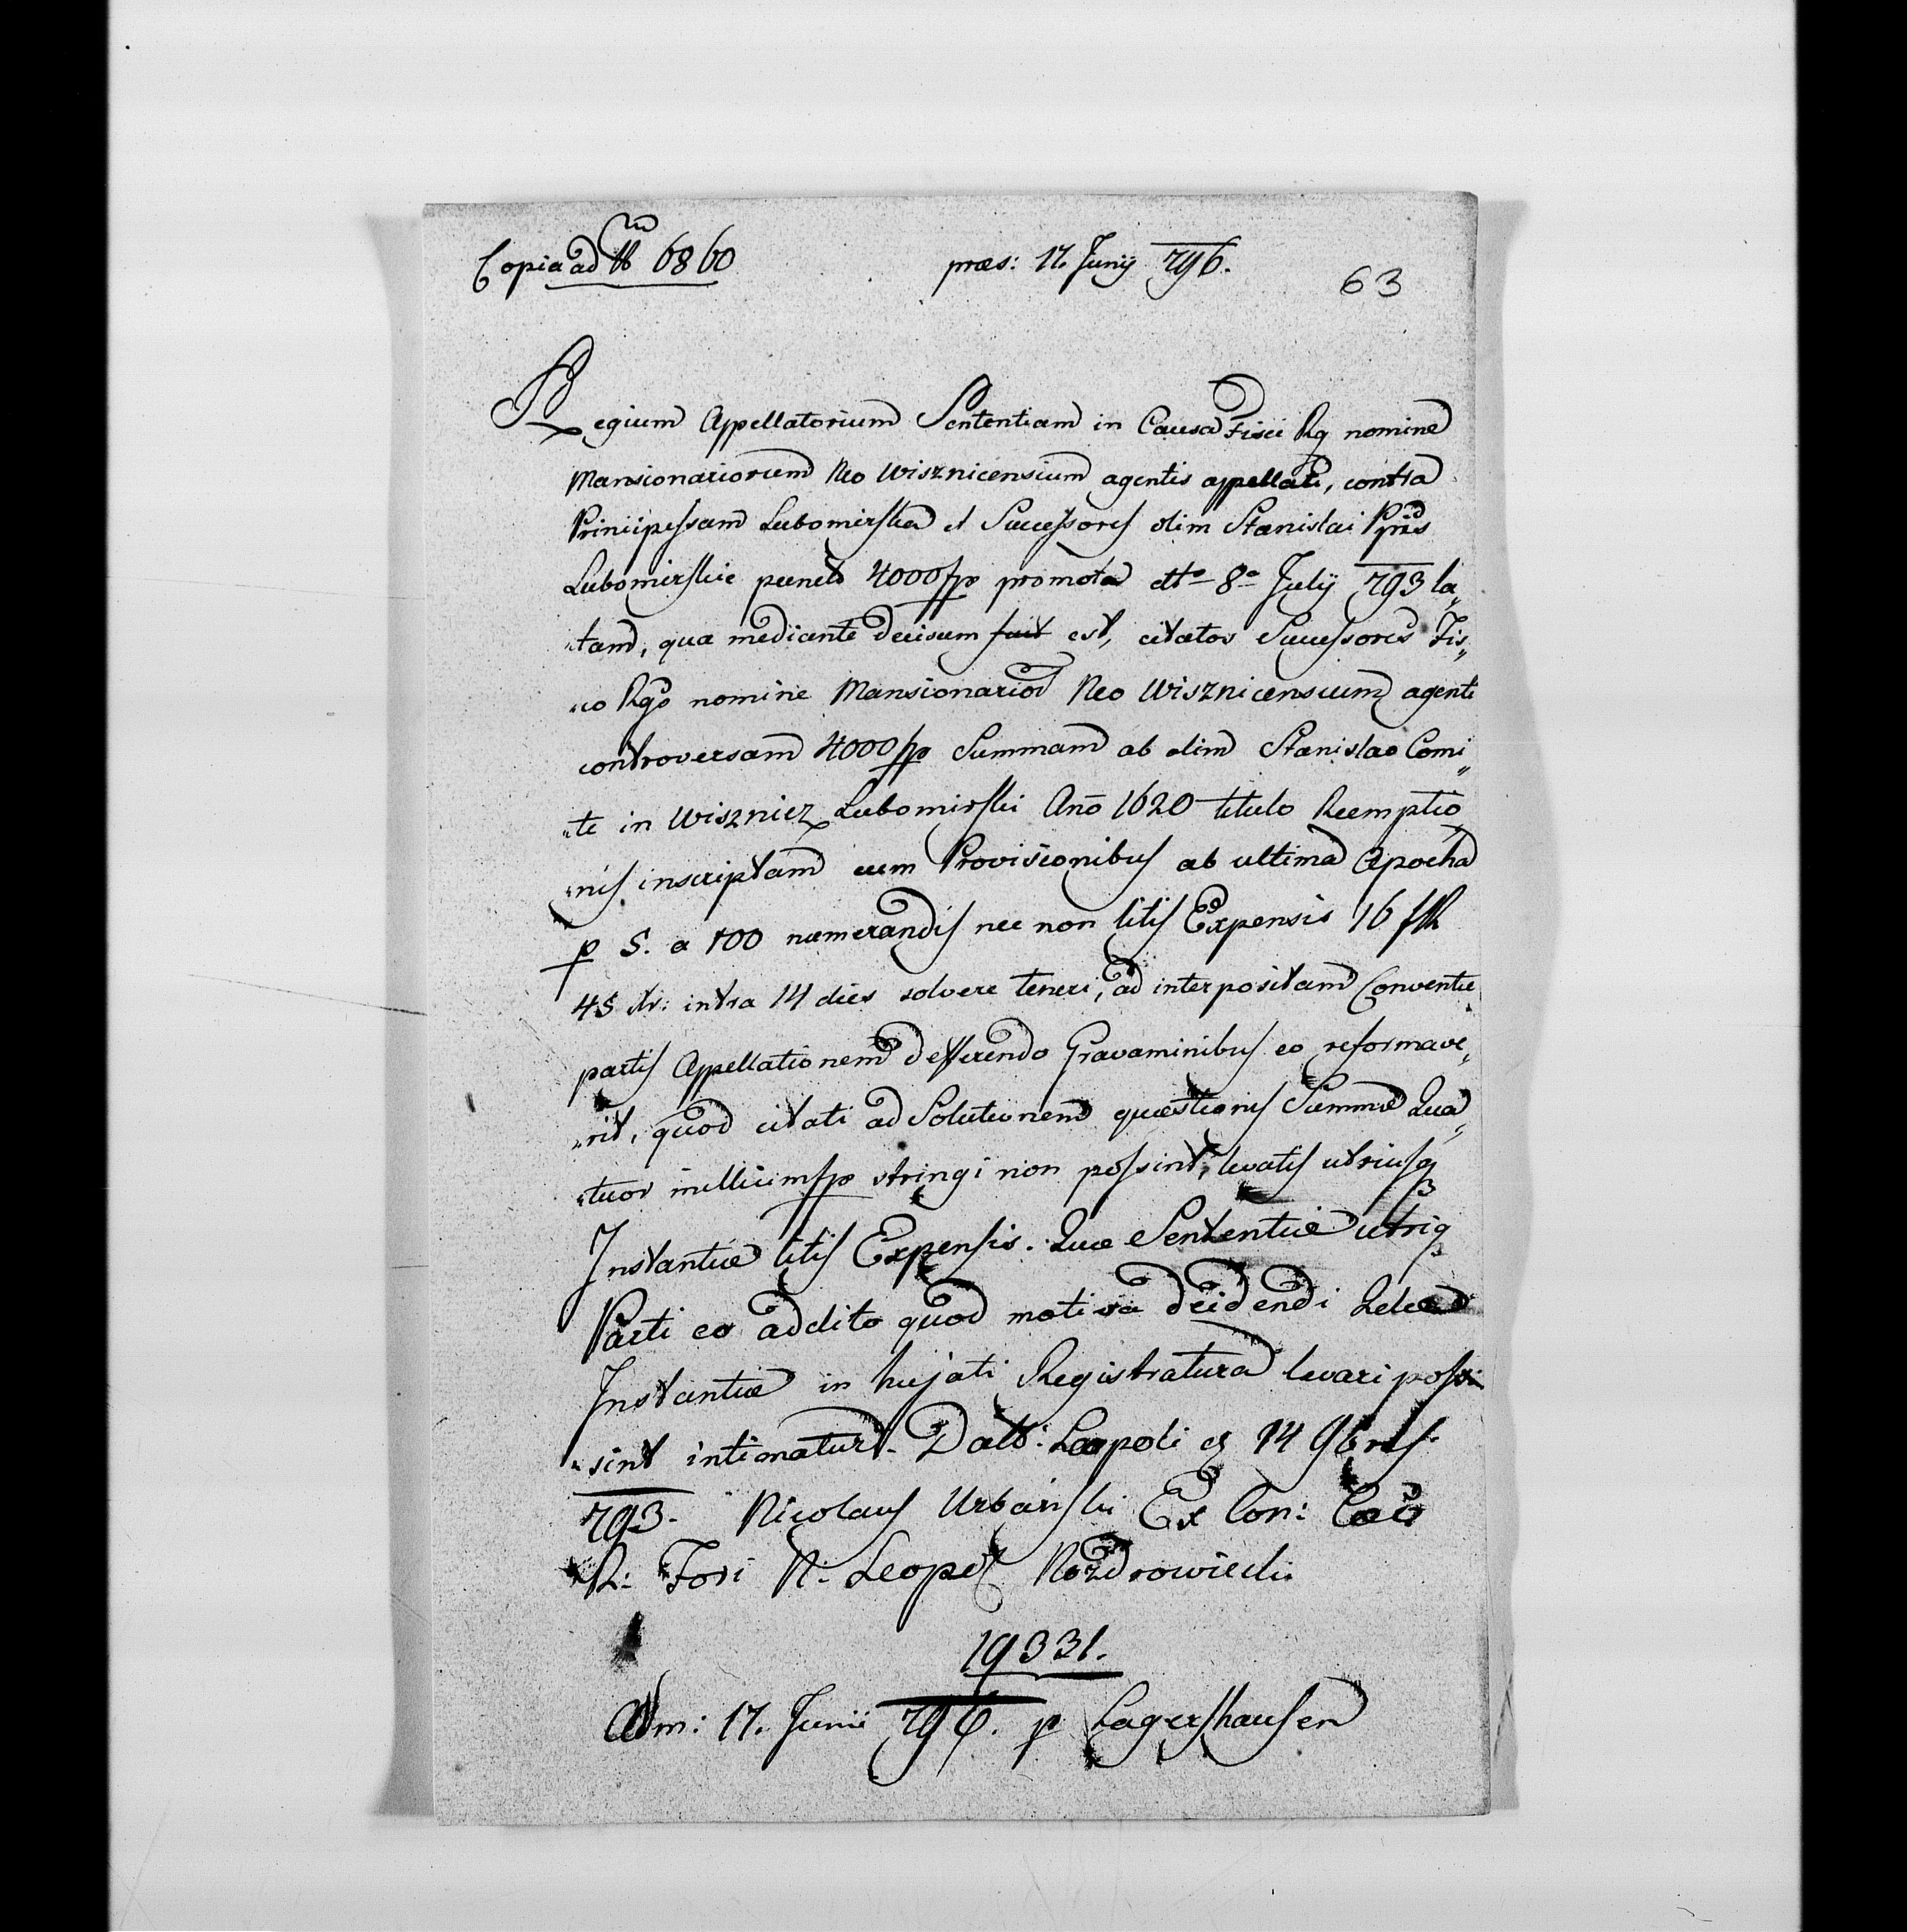 Copia ad Nrum 6860
præs: 17. Junij 796.
63
Regium Appellatorium Sententiam in Causa Fisci Rg nomine
Mansionariorum Neo Wisznicensium agentis appellati, contra
Principessam Lubomirska et Successores olim Stanislai Ppis
Lubomirskie puncto 4000 fp promota dtto 8a Julij 793 la„
„tam, qua mediante decisum fuit est, citatos Successores Fis„
„co Rgo nomine Mansionarior Neo Wisznicensium agenti
controversam 4000 fp Summam ab olim Stanislao Comi„
„te in Wisznicz Lubomirski Año 1620 titulo Reemptio„
„nis inscriptam cum Provisionibus ab ultima Apocha
p 5. a 100 numerandis nec non litis Expensis 16 fR
45 xr: intra 14 dies solvere teneri, ad interpositam Conventæ
partis Appellationem defferendo Gravaminibus eo reformave„
„rit, quod citati ad Solutionem quæstionis Summæ Qua„
„tuor millium fp stringi non possint, levatis utriusq
Instantiæ litis Expensis. Quæ Sententia utriq
Parti eo addito quod motiva decidendi
Instantiæ in hujati Registratura levari pos„
„sint intimatur. Datt: Leopoli 14 9bris
793. Nicolaus Urbański Ex Con: Cæs
R: Fori N. Leopol Nozdrowiecki
19331.
Adm: 17. Junii 796. p Lagershausen